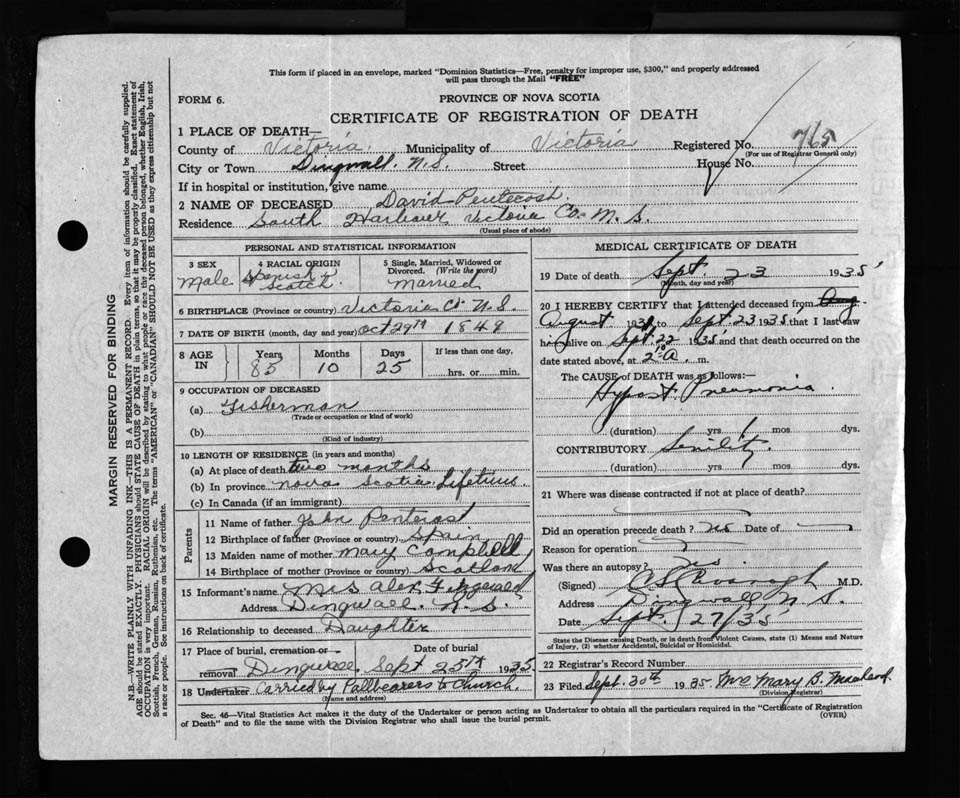 This form if placed in an envelope, marked "Dominion Statistics—Free, penalty for improper use, $300," and properly addressed
will pass through the Mail "FREE"
FORM 6.
PROVINCE OF NOVA SCOTIA
CERTIFICATE OF REGISTRATION OF DEATH
1 PLACE OF DEATH—
County of Victoria Municipality of Victoria Registered No. 765
(For use of Registrar General only)
City or Town Dingwall. N.S. Street House No.
If in hospital or institution, give name
2 NAME OF DECEASED David Pentecost
Residence South Harbour Victoria Co. N. S.
(Usual place of abode)
PERSONAL AND STATISTICAL INFORMATION
3 SEX
Male
4 RACIAL ORIGIN
Spanish &
Scotch
5 Single, Married, Widowed or
Divorced. (Write the word)
Married
6 BIRTHPLACE (Province or country) Victoria Co N.S.
7 DATE OF BIRTH (month, day and year) Oct 29th 1849
8 AGE IN
Years Months Days If less than one day,
85 10 25 hrs. or min.
9 OCCUPATION OF DECEASED
(a) Fisherman
(Trade or occupation or kind of work)
(b)
(Kind of industry)
10 LENGTH OF RESIDENCE (in years and months)
(a) At place of death two months
(b) In province Nova Scotia Lifetime.
(c) In Canada (if an immigrant)
Parents
11 Name of father John Pentecost
12 Birthplace of father (Province or country) Spain
13 Maiden name of mother Mary Campbell
14 Birthplace of mother (Province or country) Scotland
15 Informant's name Mrs Alex Fitzgerald
Address Dingwall. N.S.
16 Relationship to deceased Daughter
17 Place of burial, cremation or removal Date of burial
Dingwall Sept 25th 1935
18 Undertaker Carried by Pallbearers to Church.
(Name and address)
MEDICAL CERTIFICATE OF DEATH
19 Date of death Sept. 23 1935
(Month, day and year)
20 I HEREBY CERTIFY that I attended deceased from Aug.
August 193 to Sept. 23 1935, that I last saw
h alive on Sept. 22 1935 and that death occurred on the
date stated above, at 2 A. m.
The CAUSE OF DEATH was as follows:—
Hypost. Pneumonia.
(duration) yrs mos. dys.
CONTRIBUTORY Senility.
(duration) yrs. mos. dys.
21 Where was disease contracted if not at place of death?
Did an operation precede death? no Date of
Reason for operation
Was there an autopsy?
(Signed) M.D.
Address Dingwall N S.
Date Sept. 27/35
State the Disease causing Death, or in death from Violent Causes, state (1) Means and Nature
of Injury, (2) whether Accidental, Suicidal or Homicidal.
22 Registrar's Record Number
23 Filed Sept. 30th 1935 Mrs Mary B. MacLeod.
(Division Registrar)
Sec. 46—Vital Statistics Act makes it the duty of the Undertaker or person acting as Undertaker to obtain all the particulars required in the "Certificate of Registration
of Death" and to file the same with the Division Registrar who shall issue the burial permit.
(OVER)
MARGIN RESERVED FOR BINDING
N.B.—WRITE PLAINLY WITH UNFADING INK—THIS IS A PERMANENT RECORD. Every item of information should be carefully supplied.
AGE should be stated EXACTLY. PHYSICIANS should STATE CAUSE OF DEATH in plain terms, so that it may be properly classified. Exact statement of
OCCUPATION is very important. RACIAL ORIGIN will be described by stating to what people or race the deceased person belonged, whether English, Irish,
Scottish, French, German, Russian, Ruthenian, etc. The terms "AMERICAN" or "CANADIAN" SHOULD NOT BE USED as they express citizenship but not
a race or people. See instructions on back of certificate.